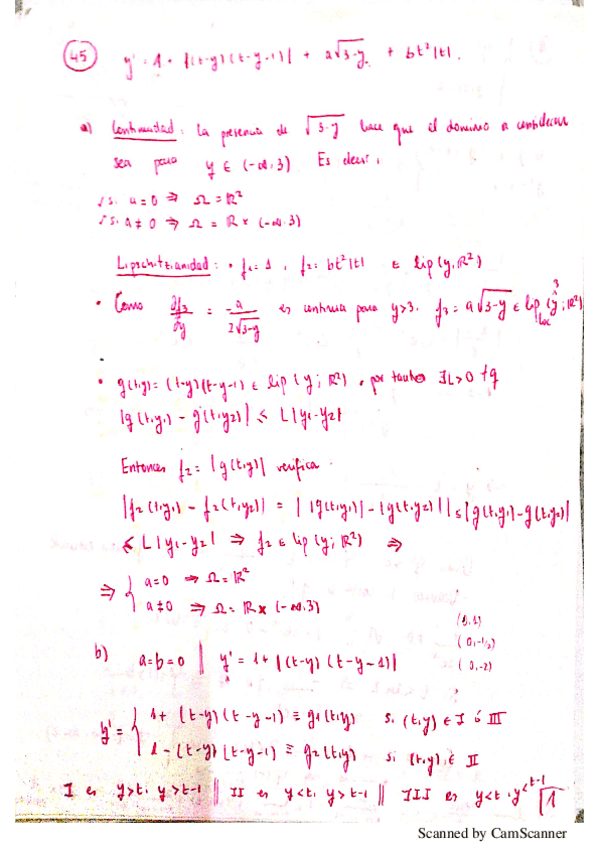 45
y' = 1 + |(t-y)(t-y-1)| + a√3-y + bt²|t|.
a) Continuidad: la presencia de √3-y hace que el dominio a considerar
sea para y ∈ (-∞,3) Es decir,
si a=0 ⇒ Ω = ℝ²
si a≠0 ⇒ Ω = ℝ × (-∞,3)
Lipschitzianidad: • f₁=1, f₂= bt²|t| ∈ lip(y,ℝ²)
• Como ∂f₃/∂y = -a/2√3-y es continua para y>3. f₃ = a√3-y ∈ lip loc (y^3; ℝ²)
• g(t,y) = (t-y)(t-y-1) ∈ lip(y; ℝ²), por tanto ∃L>0 tq
|g(t,y₁) - g(t,y₂)| ≤ L|y₁-y₂|
Entonces f₂ = |g(t,y)| verifica
|f₂(t,y₁) - f₂(t,y₂)| = ||g(t,y₁)| - |g(t,y₂)|| ≤ |g(t,y₁) - g(t,y₂)|
≤ L|y₁-y₂| ⇒ f₂ ∈ lip(y; ℝ²) ⇒
⇒ { a=0 ⇒ Ω=ℝ²
a≠0 ⇒ Ω= ℝ × (-∞,3)
(0,1)
(0,-1/2)
(0,-2)
b) a=b=0 || y' = 1+ |(t-y)(t-y-1)|
y' = { 1+ (t-y)(t-y-1) ≡ g₁(t,y) si (t,y) ∈ I ó III
1- (t-y)(t-y-1) ≡ g₂(t,y) si (t,y) ∈ II
I es y>t, y>t-1 || II es y<t, y>t-1 || III es y<t, y<t-1 1
Scanned by CamScanner